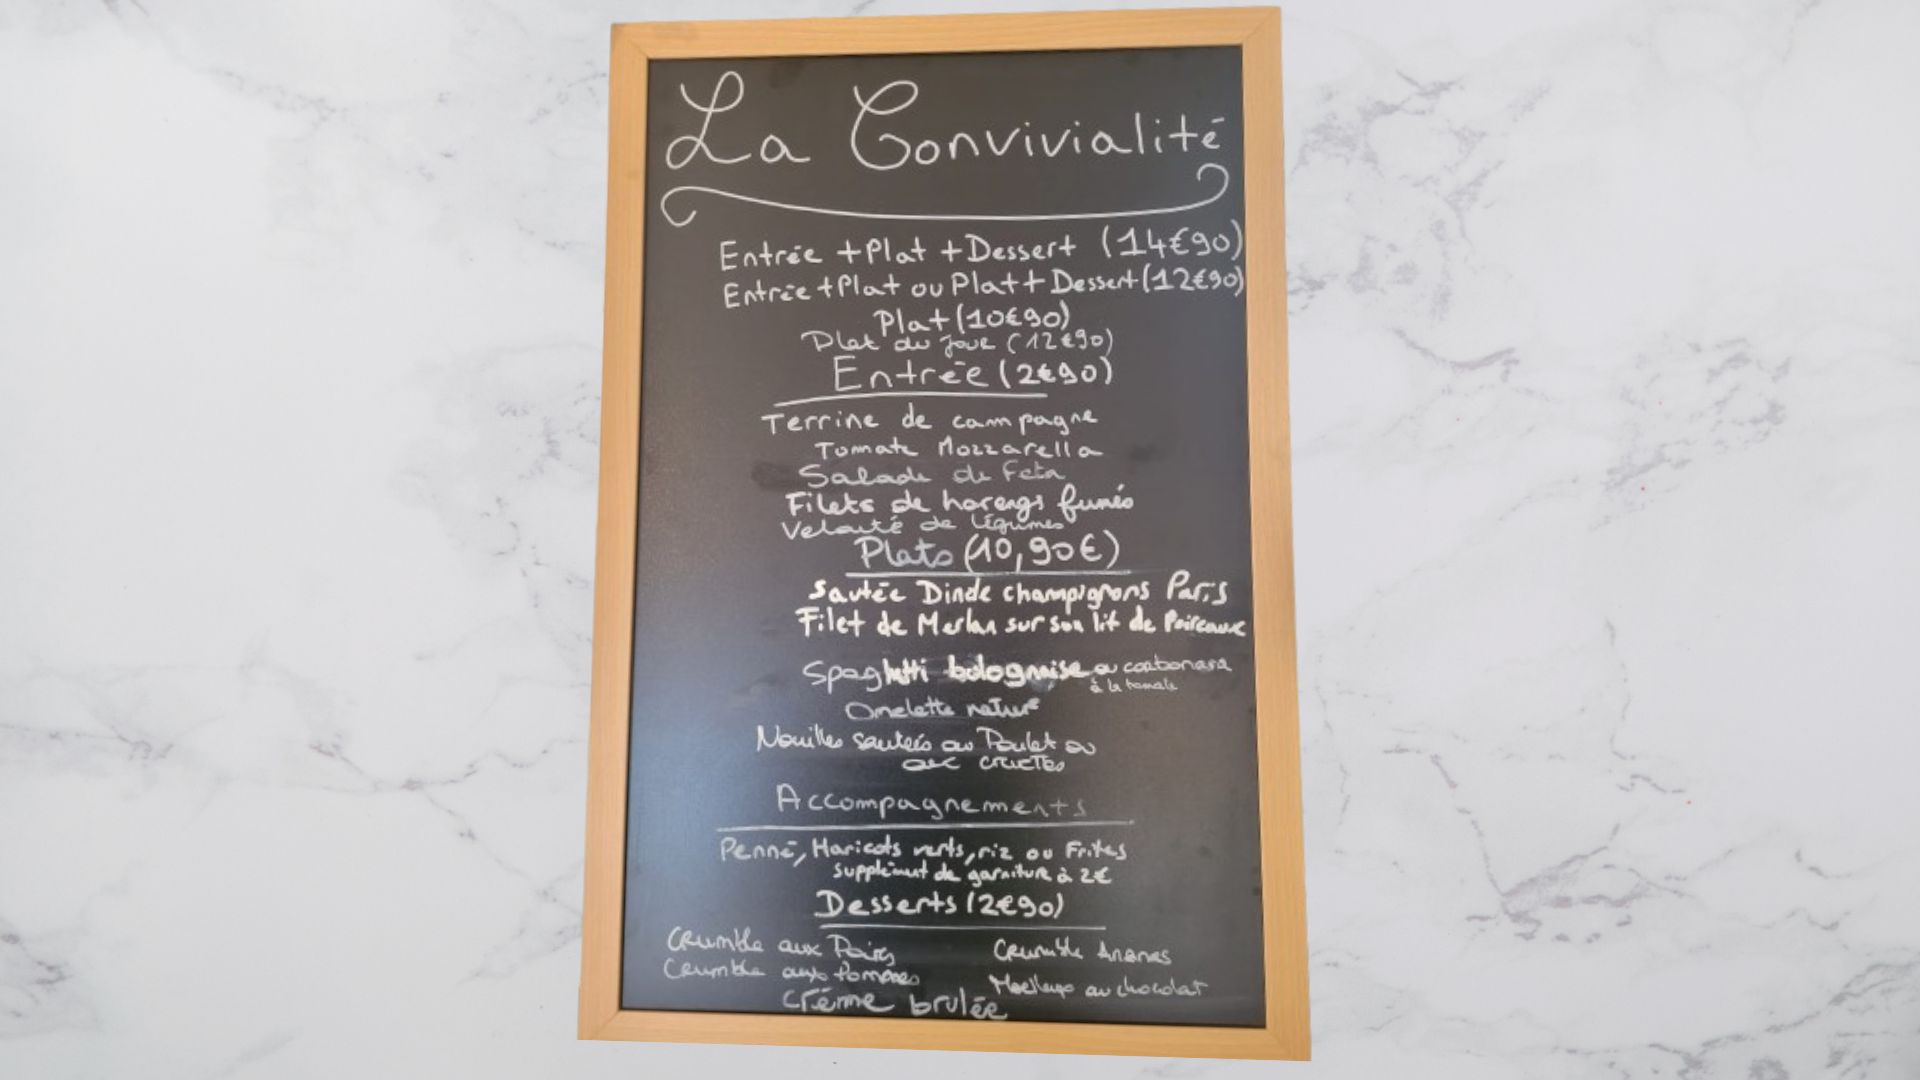 La Convivialité
Entrée + Plat + Dessert (14€90)
Entrée + Plat ou Plat + Dessert (12€90)
Plat (10€90)
Plat du jour (12€90)
Entrée (2€90)
Terrine de campagne
Tomate Mozzarella
Salade de Feta
Filets de harengs fumés
Velouté de légumes
Plats (10,90€)
Sautée Dinde champignons Paris
Filet de Merlan sur son lit de Poireaux
Spaghetti bolognaise ou carbonara
à la tomate
Omelette nature
Nouilles sautées au Poulet ou
avec crevettes
Accompagnements
Penné, Haricots verts, riz ou Frites
supplément de garniture à 2€
Desserts (2€90)
Crumble aux Poires
Crumble Ananas
Crumble aux pommes
Moelleux au chocolat
Créme brulée